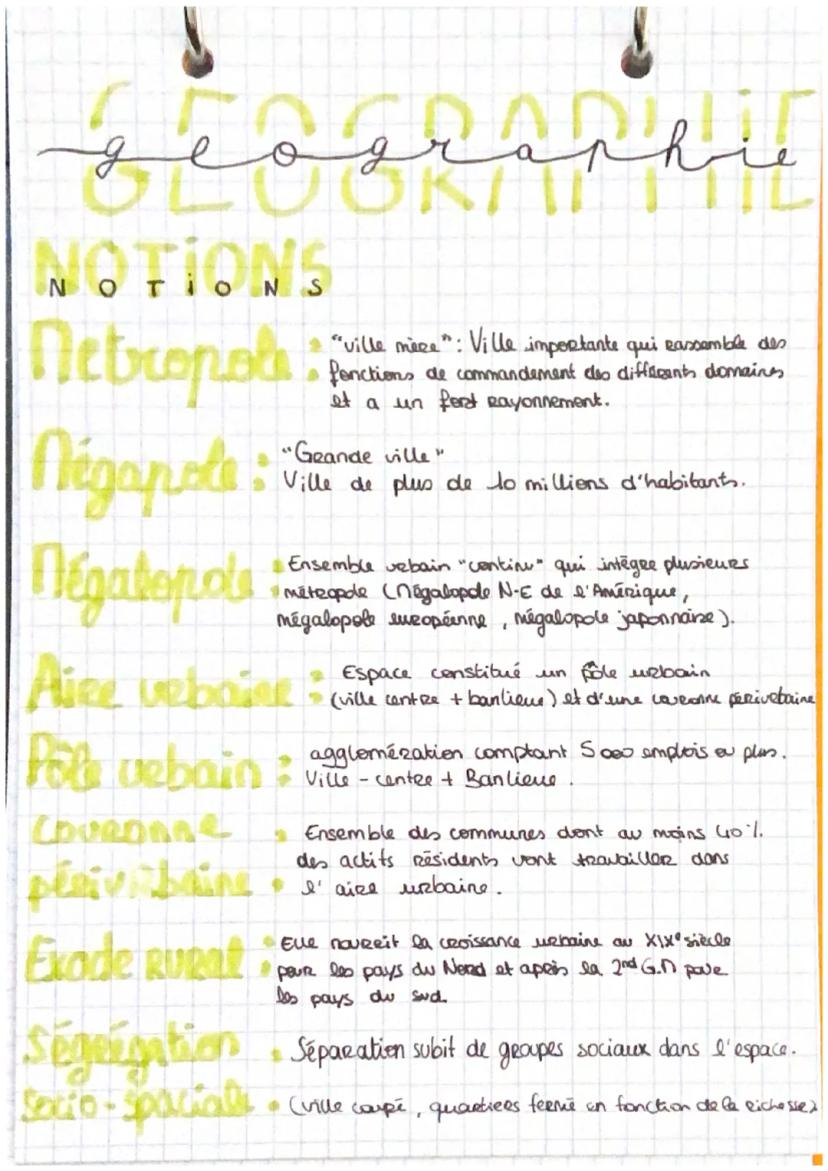 GEOGRAPHIE
geographie
NOTiONS
NOTiONS
Métropole : "ville mère" : Ville importante qui rassemble des
fonctions de commandement des différents domaines
et a un fort rayonnement.
Mégapole : "Grande ville"
Ville de plus de 10 milliens d'habitants.
Mégalopole : Ensemble urbain "continu" qui intègre plusieurs
métropole (Mégalopole N-E de l'Amérique,
mégalopole européenne, mégalopole japonnaise).
Aire urbaine : Espace constitué un pôle urbain
(ville centre + banlieue) et d'une couronne périurbaine
Pôle urbain : agglomération comptant 5000 emplois ou plus.
Ville-centre + Banlieue.
couronne
périurbaine : Ensemble des communes dont au moins 40%
des actifs résidents vont travailler dans
l'aire urbaine.
Exode RURAL : Elle nourrit la croissance urbaine au XIXe siècle
pour les pays du Nord et après la 2nd G.M pour
les pays du sud.
Ségrégation
socio-spaciale : Séparation subit de groupes sociaux dans l'espace.
(ville coupé, quartiers fermé en fonction de la richesse)